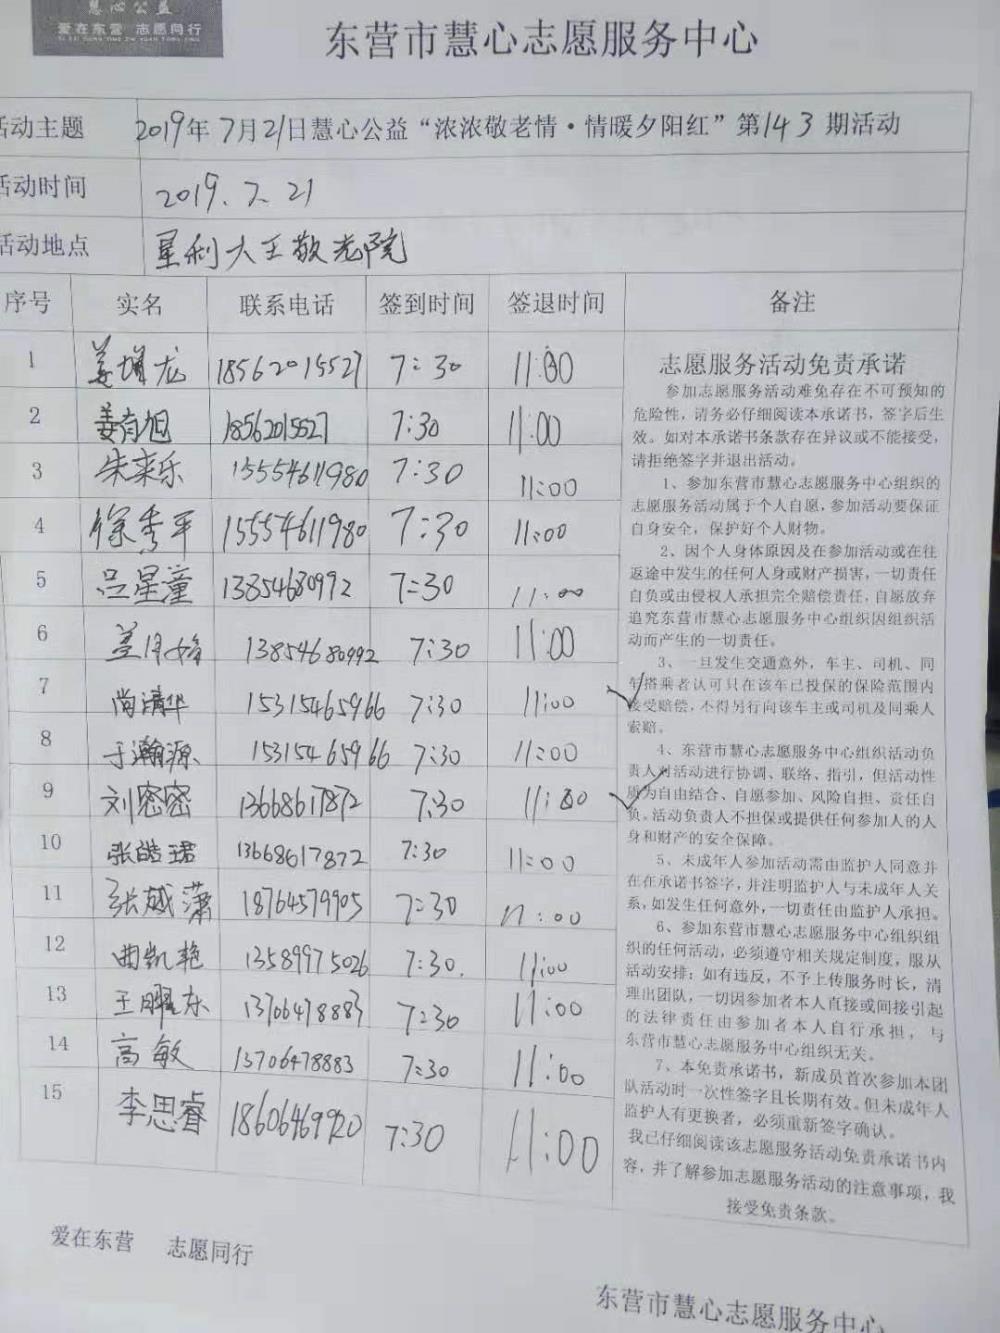 慧心公益
爱在东营 志愿同行
东营市慧心志愿服务中心
活动主题 2019年7月21日慧心公益“浓浓敬老情·情暖夕阳红”第143期活动
活动时间 2019.7.21
活动地点 星利大王敬老院
序号 实名 联系电话 签到时间 签退时间 备注
1 姜增龙 18562015527 7:30 11:00
2 姜有旭 18562015527 7:30 11:00
3 朱来乐 15554611980 7:30 11:00
4 徐秀平 15554611980 7:30 11:00
5 吕星童 13854680992 7:30 11:00
6 盖月娟 13854680992 7:30 11:00
7 尚清华 15315465966 7:30 11:00
8 于瀚源 15315465966 7:30 11:00
9 刘密密 13668617872 7:30 11:00
10 张皓珺 13668617872 7:30 11:00
11 张越潇 18764579905 7:30 11:00
12 曲凯艳 13589975026 7:30. 11:00
13 王耀东 13706478883 7:30 11:00
14 高敏 13706478883 7:30 11:00
15 李思睿 18606469920 7:30 11:00
志愿服务活动免责承诺
参加志愿服务活动难免存在不可预知的
危险性，请务必仔细阅读本承诺书，签字后生
效。如对本承诺书条款存在异议或不能接受，
请拒绝签字并退出活动。
1、参加东营市慧心志愿服务中心组织的
志愿服务活动属于个人自愿，参加活动要保证
自身安全，保护好个人财物。
2、因个人身体原因及在参加活动或在往
返途中发生的任何人身或财产损害，一切责任
自负或由侵权人承担完全赔偿责任，自愿放弃
追究东营市慧心志愿服务中心组织因组织活
动而产生的一切责任。
3、一旦发生交通意外，车主、司机、同
车搭乘者认可只在该车已投保的保险范围内
接受赔偿，不得另行向该车主或司机及同乘人
索赔。
4、东营市慧心志愿服务中心组织活动负
责人对活动进行协调、联络、指引，但活动性
质为自由结合、自愿参加、风险自担、责任自
负。活动负责人不担保或提供任何参加人的人
身和财产的安全保障。
5、未成年人参加活动需由监护人同意并
在在承诺书签字，并注明监护人与未成年人关
系，如发生任何意外，一切责任由监护人承担。
6、参加东营市慧心志愿服务中心组织组
织的任何活动，必须遵守相关规定制度，服从
活动安排；如有违反，不予上传服务时长，清
理出团队，一切因参加者本人直接或间接引起
的法律责任由参加者本人自行承担，与
东营市慧心志愿服务中心组织无关。
7、本免责承诺书，新成员首次参加本团
队活动时一次性签字且长期有效。但未成年人
监护人有更换者，必须重新签字确认。
我已仔细阅读该志愿服务活动免责承诺书内
容，并了解参加志愿服务活动的注意事项，我
接受免责条款。
爱在东营 志愿同行
东营市慧心志愿服务中心